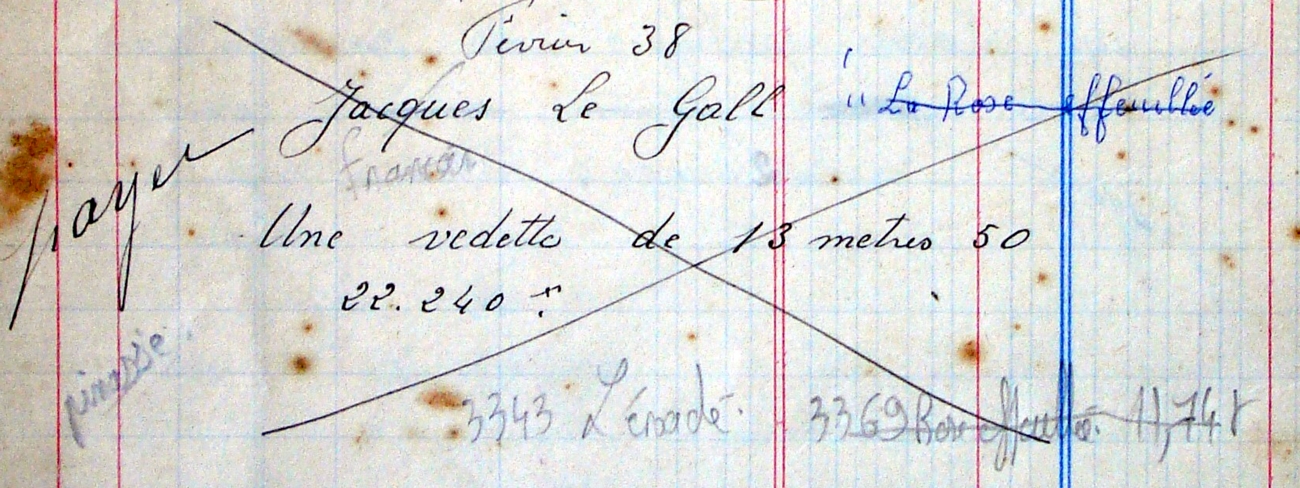 Février 38
Jacques Le Gall " La Rose effeuillée
payer
francin
Une vedette de 13 metres 50
22.240 f
pinasse.
3343 L'Évadé. 3369 Rose effeuillé. 11,74 T